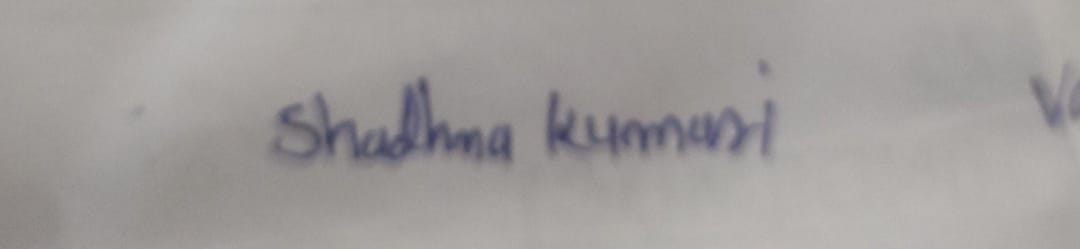 Shadhna kumari